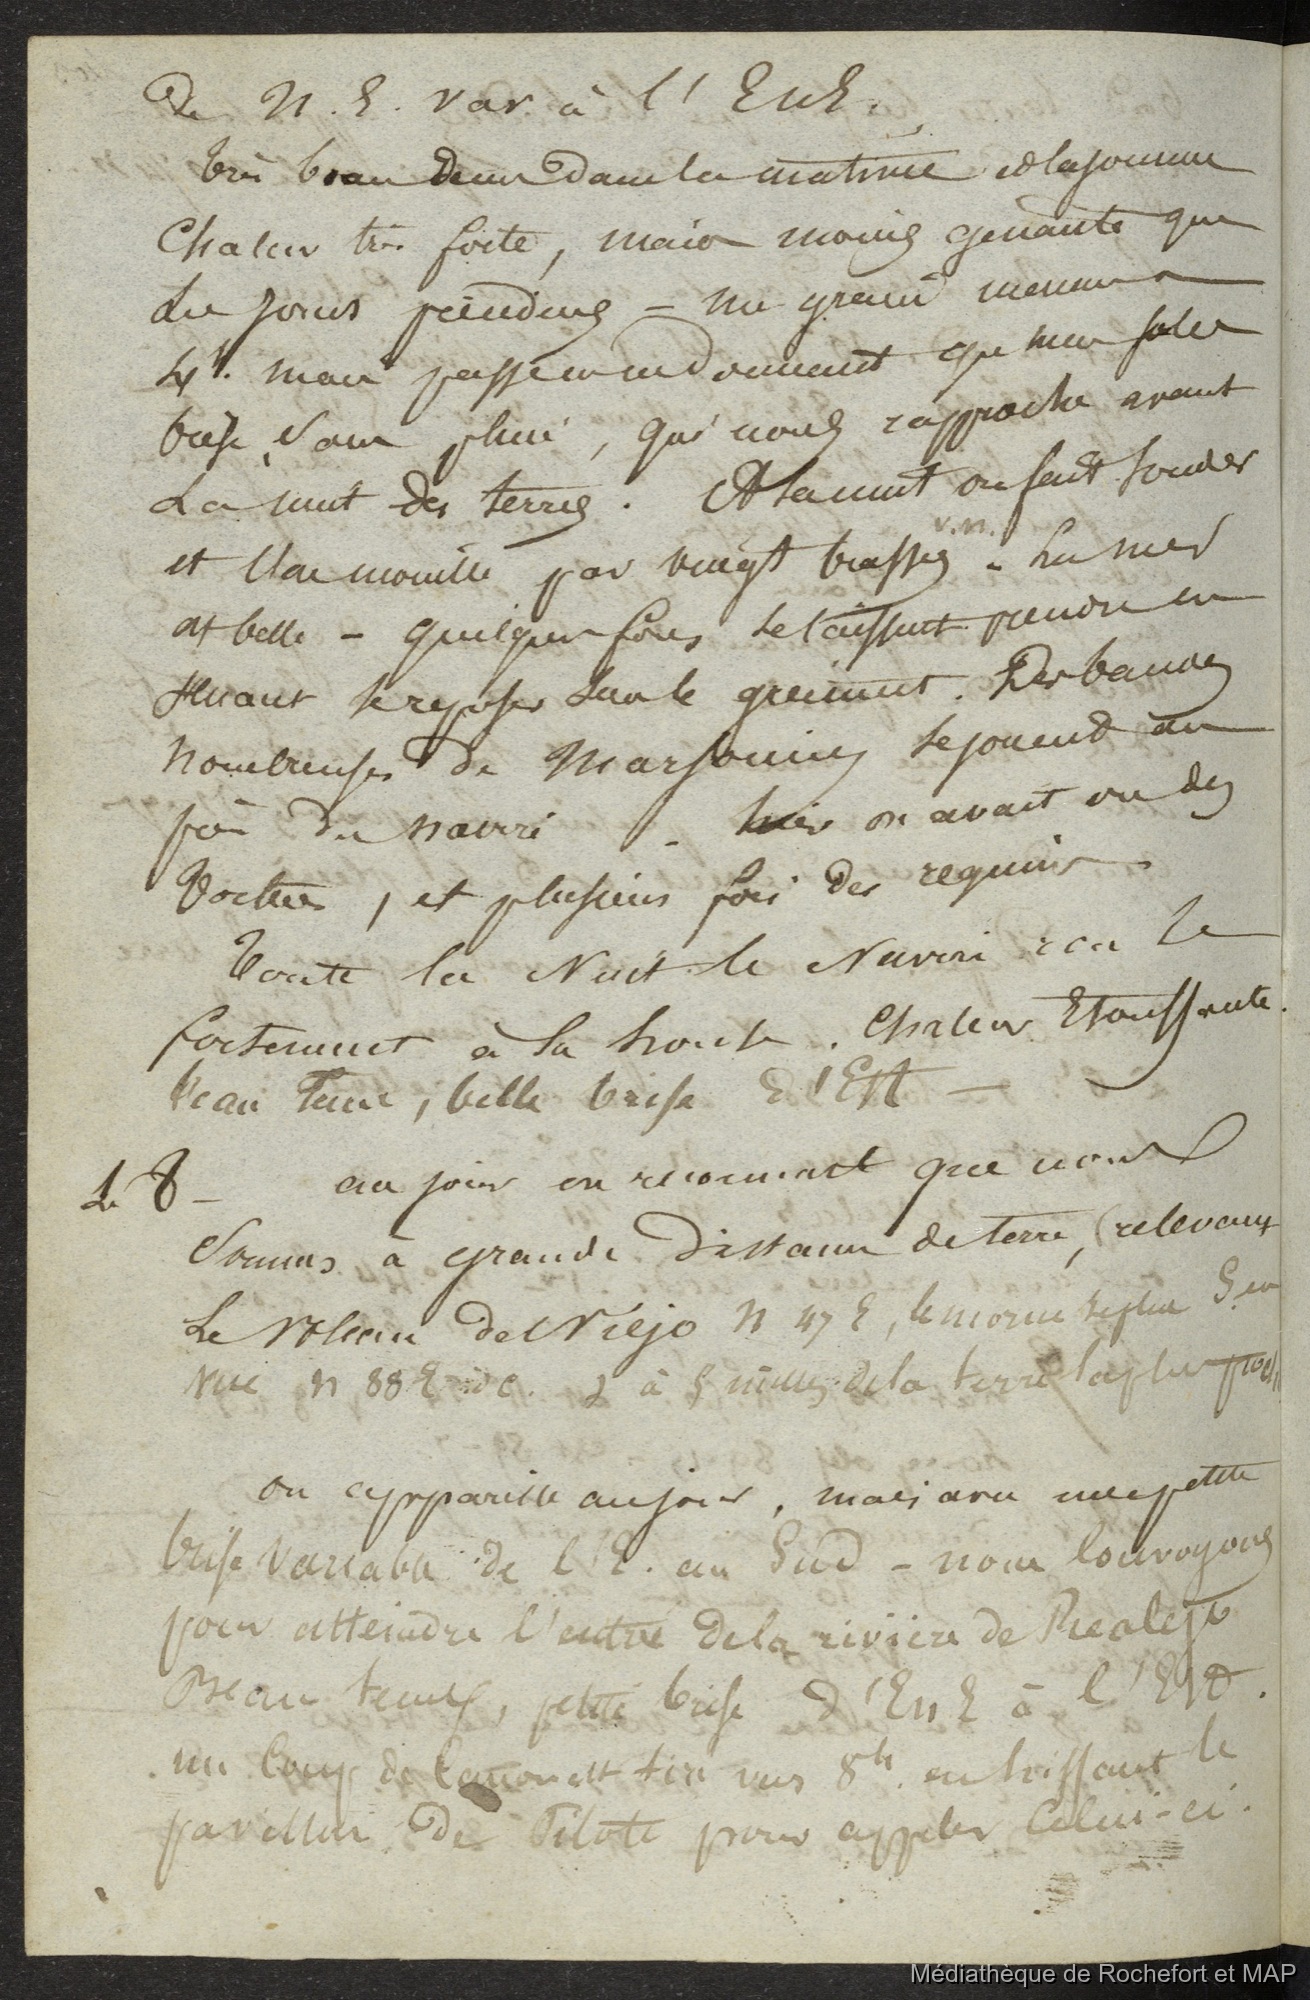 De N. E. var. à l'ENE.
Très beau tems dans la matinée et la journée
Chaleur très forte, mais moins genante que
les jours précédens - un grain menace à
4h. mais passe en ne donnant qu'une folle
brise, sans pluie, qui nous rapproche avant
la nuit des terres. A la nuit on fait sonder
et l'on mouille par vingt brasses v.n. - La mer
est belle - quelques fous se laissent prendre en
venant se reposer sur le greement. Des bandes
nombreuses de Marsouins se jouent au
près du navire - hier on avait vu des
tortues, et plusieurs fois des requins
Toute la Nuit le Navire roule
fortement à la houle. Chaleur Etouffante.
beau tems, belle brise d'Est -
Le 8 - au jour on reconnait que nous
sommes à grande distance de terre, (relevant
Le Volcan del Viejo N 47 E, le morne le plus S en
vue N 88 E 2 à 5 milles de la terre la plus proche
on appareille au jour, mais avec une petite
brise variable de l'E. au Sud - nous louvoyons
pour atteindre l'entrée de la rivière de Realejo
Beau tems, petite brise d'ENE à l'Est.
un Coup de Canon est tiré vers 8h. en hissant le
pavillon de Pilote pour appeler Celui-ci.
Médiathèque de Rochefort et MAP